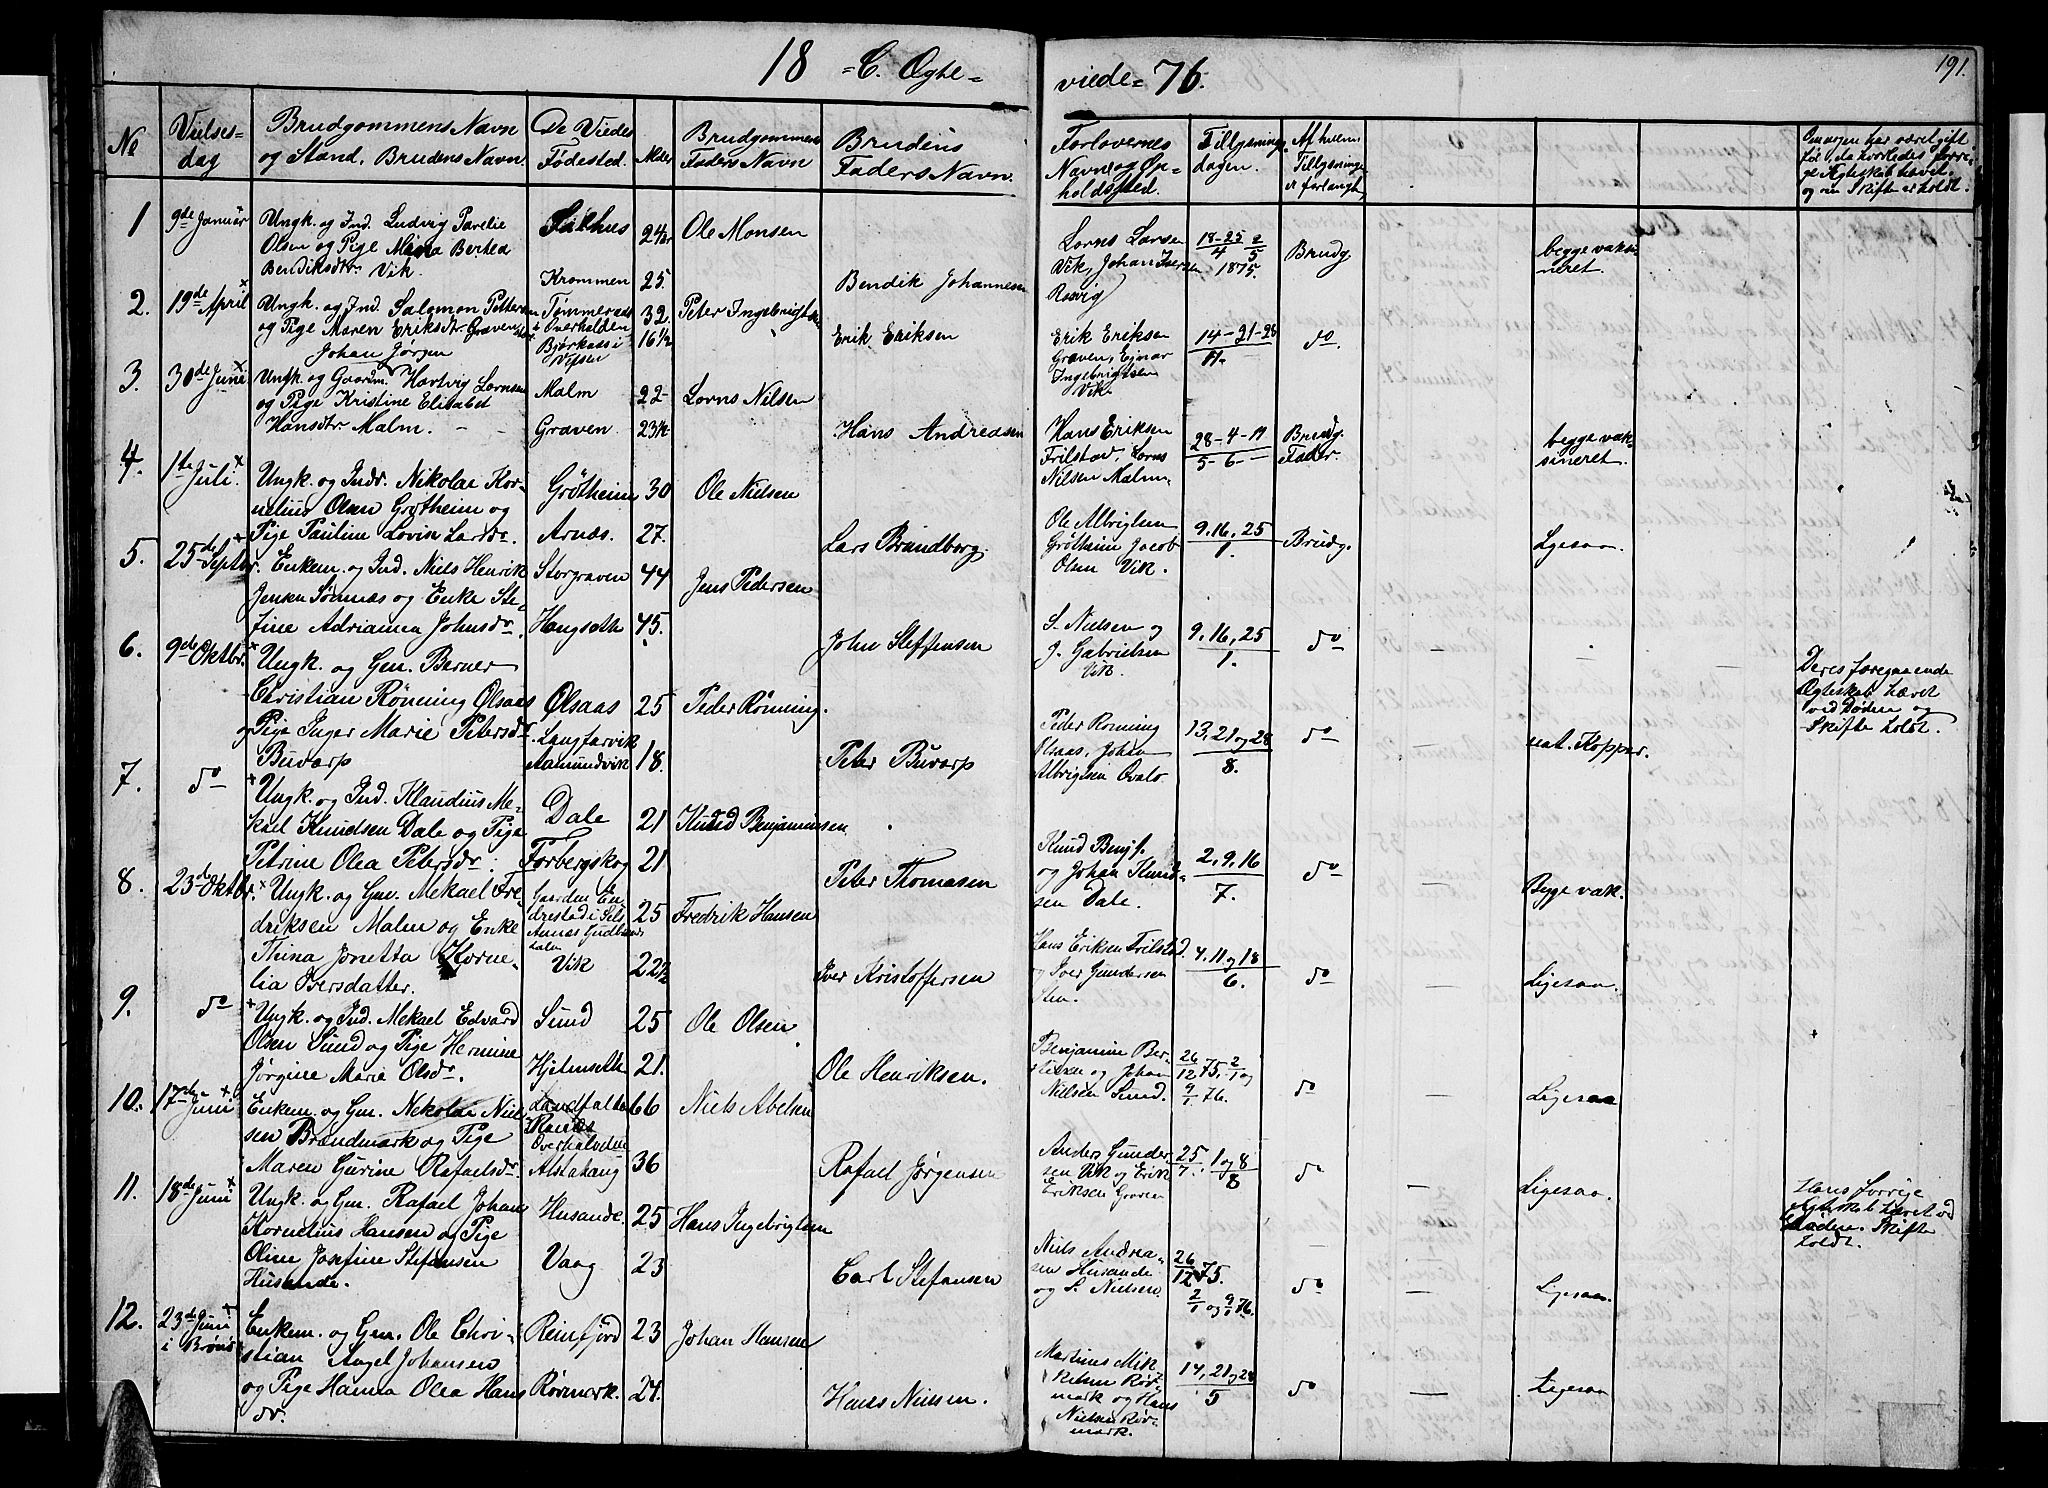 18 = C. Ægte =
viede = 76.
191.
No
Vielses-
dag
Brudgommens Navn
og Stand. Brudens Navn.
De Viedes
Fødested.
Alder
Brudgommens
Faders Navn
Brudens
Faders Navn.
Forlovernes
Navne og Op-
holdssted.
Tillysnings-
dagen.
Af hvem
Tillysningen
er forlangt
Om nogen har været gift
før, da hvorledes forri-
ge Ægteskab hævet
og om Skifte er holdt.
1
9de Januar
Ungk. og Ind. Ludvig Parelie
Olsen og Pige Mina Bertea
Bendiksdtr Vik.
Krommen
24
25.
Ole Monsen
Bendik Johannesen
Lorns Larsen
Vik, Johan Iversen
Rosvig
18-25 2
4 5
1875.
Brudg.
begge vaksi-
neret.
2.
19de April
Ungk. og Ind. Salomon Pettersen
og Pige Maren Eriksdtr Graven
i Overhalden
Bjørkaas i
Vefsen
32
16 1/2
Peter Ingebrigtsen
Erik Eriksen
Erik Eriksen
Graven, Ejnar
Ingebrigtsen
Vik.
14-21-28
11.
do
3.
30de Juni
Johan Jørgen
Ungk. og Gaardm. Hartvig Lornsen
og Pige Kristine Elisabet
Hansdtr Malm.
Malm
Graven.
22
23 1/2
Lorns Nilsen
Hans Andreasen
Hans Eriksen
Frilstad, Lorns
Nilsen Malm.
28-4-11
5-6
Brudg.
Fader.
begge vak-
sineret.
4.
1te Juli
Ungk. og Indr. Nikolai Kor-
nelius Olsen Grøtheim og
Pige Pauline Lovise Larsdr.
Grøtheim
Arnæs.
30
27.
Ole Nielsen
Lars Brandborg.
Ole Albrigtsen
Grøtheim Jacob
Olsen Vik.
9, 16, 25
1.
Brudg.
Ligesaa
5.
25de Septbr.
Enkem. og Ind. Niels Henrik
Jensen Sønnæs og Enke Ste-
fine Adrianna Johnsdr.
Storgraven
Haugseth
44
45.
Jens Pedersen
John Steffensen
S. Nielsen og
J. Gabrielsen
Vik.
9, 16, 25
1.
do
Deres foregaaende
Ægteskab hævet
ved Døden og
Skifte holdt.
6.
9de Oktbr.
Ungk. og Gm. Berner
Christian Rønning Olsaas
og Pige Inger Marie Petersdr
Buvarp
Olsaas
Langfarvik
Aamundvik
25
18.
Peder Rønning.
Peter Buvarp
Peder Rønning
Olsaas, Johan
Albrigtsen Ovale
13, 21 og 28
8.
do
nat. Kopper.
7.
do
Ungk. og Ind. Klaudius Me-
kael Knudsen Dale og Pige
Petrine Olea Petersdr.
Dale
Forbergskog
21
21
Knud Benjaminsen
Peter Thomasen
Knud Benj.
og Johan Knud-
sen Dale.
2, 9, 16
7.
do
Begge vak.
8.
23de Oktbr.
Ungk. og Gm. Mekael Fre-
driksen Malm og Enke
Thina Jonetta Korne-
lia Iversdatter.
Gaarden En-
drestad i Sels
Vik
25
22 1/2
Fredrik Hansen
Iver Kristoffersen
Hans Eriksen Frilstad
og Iver Gundersen
Sten.
4, 11 og 18
6.
do
Ligesaa.
9.
do
Ungk. og Ind. Mekael Edvard
Olsen Sund og Pige Hermine
Jørgine Marie Olsdr.
Sund
Hjelmseth
25
21.
Ole Olsen
Ole Henriksen.
Benjamin Ber-
telsen og Johan
Nielsen Sund.
26 2
12 75, 1 og
9
1 76.
do
Ligesaa
10.
17de Juni
Enkem. og Gm. Nekolai Niel-
sen Brandmark og Pige
Maren Gurine Rafaelsdr
Overhalvden
Alstahaug
66
36
Niels Abelsen
Rafael Jørgensen
Anders Gunder-
sen Vik og Erik
Eriksen Graven
25 1 og 8
7. 8
do
Ligesaa.
Hans forrige
Ægteskab hævet ved
Døden. Skifte
holdt.
11.
18de Juni
Ungk. og Gm. Rafael Johan
Kornelius Hansen og Pige
Oline Josefine Stefansen
Husande.
Husande.
Vaag
25
23
Hans Ingebrigtsen
Carl Stefansen
Niels Andrea-
sen Husande
og S. Nielsen.
26
12 75.
2 9
1 og 1 76.
do
Ligesaa.
12.
23de Juni
i Brønø
Enkem. og Gm. Ole Chri-
stian Angel Johansen
og Pige Hanna Olea Hans
dr.
Reinfjord
Rørmark.
23
24.
Johan Hansen
Hans Nielsen.
Martines Mik-
kelsen Rør-
mark og Hans
Nielsen Rør-
mark.
14, 21 og 28
5
do
Ligesaa